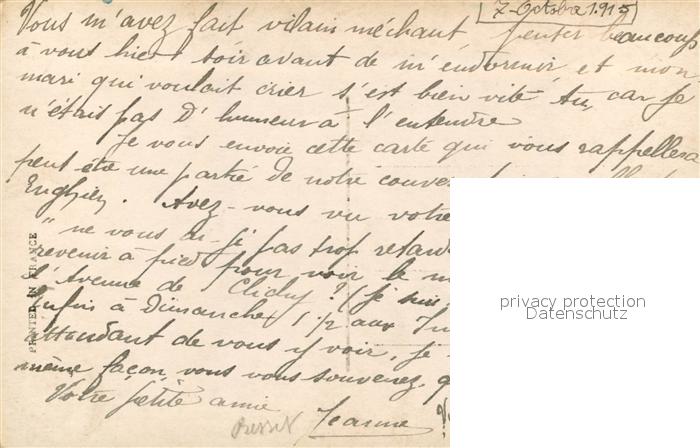 7 - Octobre 1.915
Vous m'avez fait vilain méchant penser beaucoup
à vous hier soir avant de m'endormir, et mon
mari qui voulait crier s'est bien vite tu, car je
n'étais pas d'humeur à l'entendre
Je vous envoie cette carte qui vous rappellera
peut être une partie de notre
Enghien. Avez-vous vu votre
" ne vous ai-je pas trop
revenir à pied pour voir le
l'Avenue de Clichy ? Je suis
Enfin à Dimanche, 1 1/2 aux
attendant de vous y voir, je
même façon vous vous souvenez,
Votre petite amie
Jeanne
PRINTED IN FRANCE
privacy protection
Datenschutz